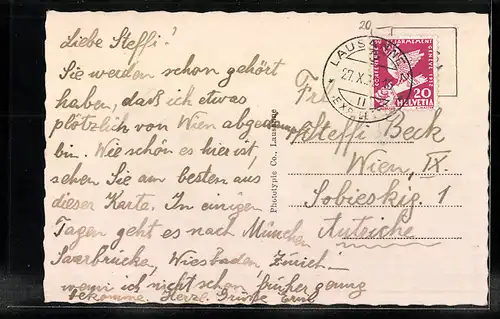 Liebe Steffi!
Sie werden schon gehört
haben, daß ich etwas
plötzlich von Wien abgedampft
bin. Wie schön es hier ist,
sehen Sie am besten aus
dieser Karte. In einigen
Tagen geht es nach München
Saarbrücken, Wiesbaden, Zürich
wenn ich nicht schon früher genug
bekomme. Herzl. Grüße Erna
Phototypie Co., Lausanne
20
LAUSANNE
27.X.
20
HELVETIA
Steffi Beck
Wien, IX.
Sobieskig. 1
Autriche